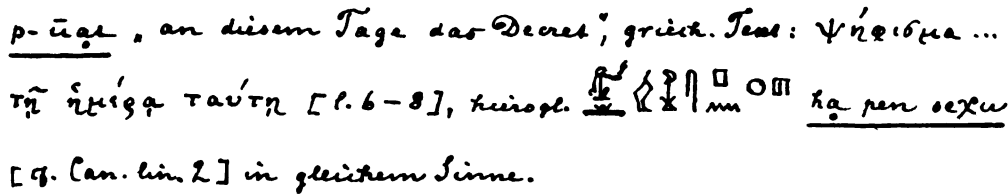 p-ūạt „an diesem Tage das Decret", griech. Text: ψήφισμα ...
τῇ ἡμέρᾳ ταύτῃ [l. 6-8], hierogl. hạ pen seχu
[cf. Can. lin. 2] in gleichem Sinne.